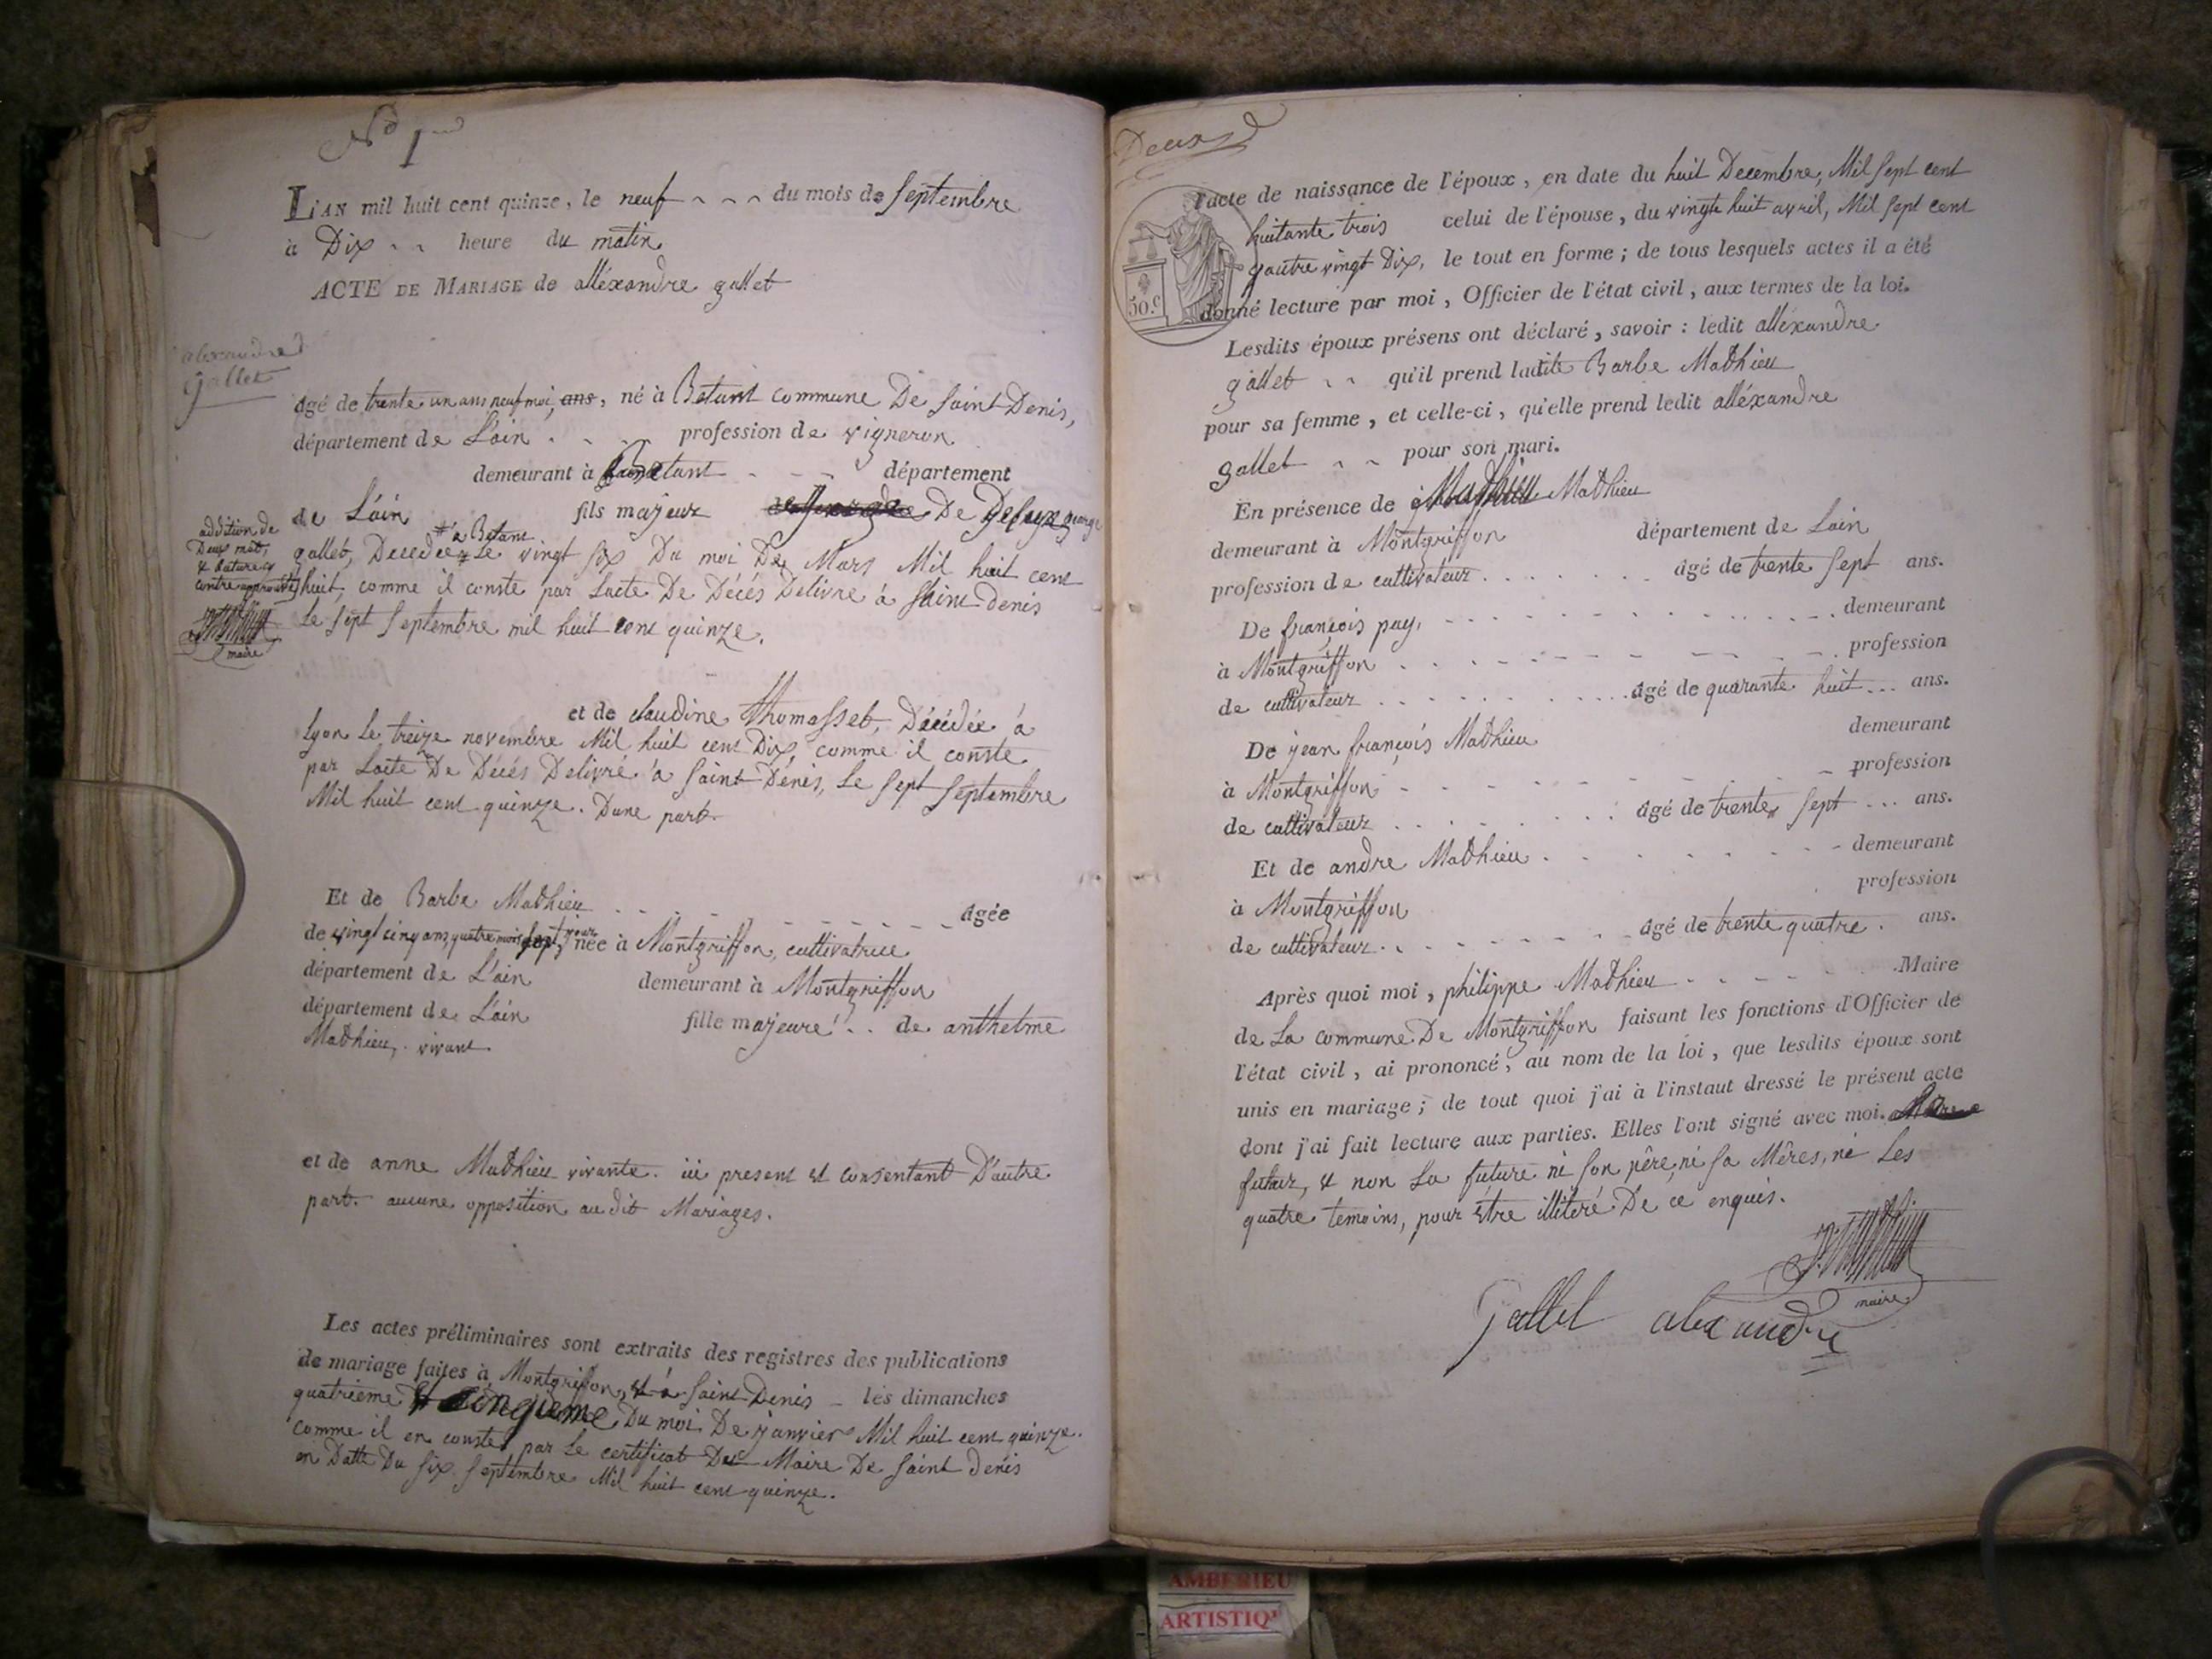 No 1
L'AN mil huit cent quinze, le neuf du mois de septembre
à Dix heure du matin
ACTE DE MARIAGE de alléxandre gallet
alexandre
gallet
âgé de trente un ans neuf moi, ans, né à Betant commune De saint Denis,
département de L'ain profession de vigneron
demeurant à Betant département
de L'ain fils majeur De george
addition de
Deux mots,
& rature
contre approuvé
maire
à Betant
gallet, Decedee Le vingt six Du moi De Mars Mil huit cent
huit, comme il conste par Lacte De Décés Delivre à saint Denis
Le sept septembre mil huit cent quinze.
et de claudine thomasset, Décédée à
Lyon Le treize novembre Mil huit cent Dix comme il conste
par Lacte De Décés Delivré à saint Dénis, Le sept septembre
Mil huit cent quinze. Dune part
Et de Barbe Mathieu âgée
de vingt cinq ans quatre mois jour née à Montgriffon, cultivatrice
département de L'ain demeurant à Montgriffon
département de L'ain fille majeure de anthelme
Mathieu, vivant
et de anne Mathieu vivante. ici present et consentant D'autre
part. aucune opposition au dit Mariages.
Les actes préliminaires sont extraits des registres des publications
de mariage faites à Montgriffon, & à saint Denis les dimanches
quatrieme & cinquieme Du moi De janvier Mil huit cent quinze.
comme il en conste par Le certificat Du Maire De saint denis
en Datte Du six septembre Mil huit cent quinze.
Deux
50.c
l'acte de naissance de l'époux, en date du huit Decembre, Mil sept cent
huitante trois celui de l'épouse, du vingte huit avril, Mil sept cent
qautre vingt Dix, le tout en forme; de tous lesquels actes il a été
donné lecture par moi, Officier de l'état civil, aux termes de la loi.
Lesdits époux présens ont déclaré, savoir: ledit alléxandre
gallet qu'il prend ladite Barbe Mathieu
pour sa femme, et celle-ci, qu'elle prend ledit alléxandre
gallet pour son mari.
En présence de Mathieu
demeurant à Montgriffon département de Lain
profession de cultivateur âgé de trente sept ans.
De françois puy, demeurant
à Montgriffon profession
de cultivateur âgé de quarante huit ans.
De jean françois Mathieu demeurant
à Montgriffon profession
de cultivateur âgé de trente sept ans.
Et de andre Mathieu demeurant
à Montgriffon profession
de cultivateur âgé de trente quatre ans.
Après quoi moi, philippe Mathieu Maire
de La commune De Montgriffon faisant les fonctions d'Officier de
l'état civil, ai prononcé, au nom de la loi, que lesdits époux sont
unis en mariage; de tout quoi j'ai à l'instaut dressé le présent acte
dont j'ai fait lecture aux parties. Elles l'ont signé avec moi.
futur, & non La future ni son père, ni sa Mères, ni Les
quatre temoins, pour être illiteré De ce enquis.
maire
Gallet alexandre
AMBERIEU
ARTISTIQ'